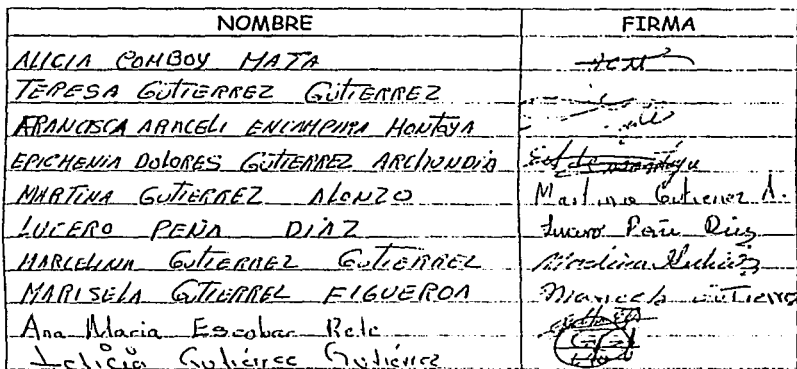 NOMBRE FIRMA
ALICIA COMBOY MATA
TERESA GUTIERREZ GUTIERREZ
FRANCISCA ARACELI ENCAMPIRA MONTOYA
EPICHENIA DOLORES GUTIERREZ ARCHUNDIA
MARTINA GUTIERREZ ALONZO Martina Gutierrez A.
LUCERO PEÑA DIAZ Lucero Peña Diaz
MARCELINA GUTIERREZ GUTIERREZ
MARISELA GTIERREL FIGUEROA Maricela GUTierre
Ana Maria Escobar Rele
Leticia Gutiérrez Gutiérrez